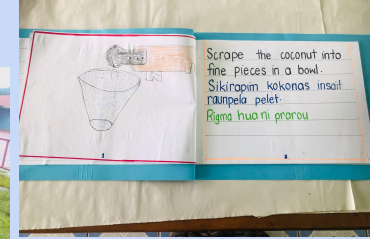 Scrape the coconut into
fine pieces in a bowl.
Sikirapim kokonas insait
raunpela pelet.
Rigma huani prarou